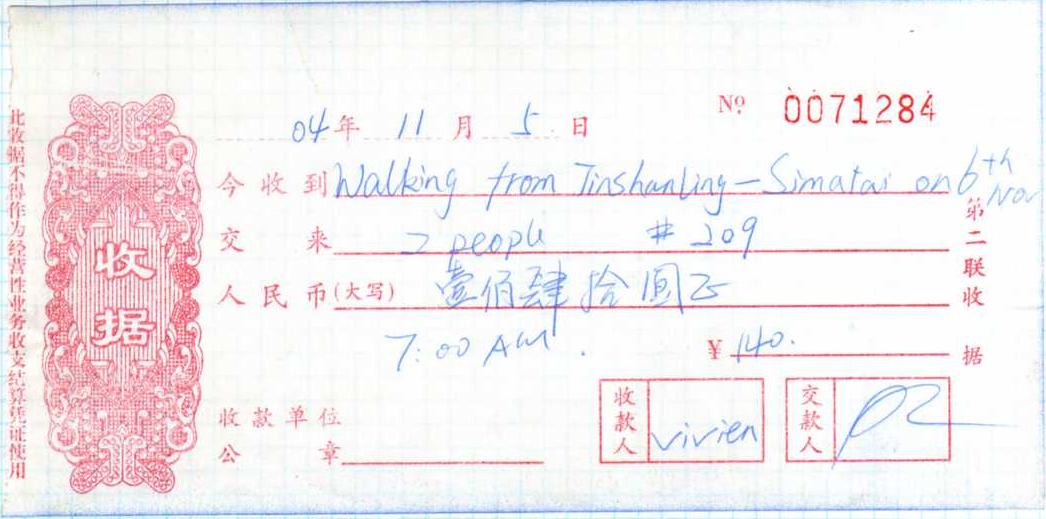 此收据不得作为经营性业务收支结算凭证使用
收据
№ 0071284
04年 11月 5日
今收到 Walking from Jinshanling - Simatai on 6th Nov
交来 2 people # 209
人民币(大写) 壹佰肆拾圆正
7:00 AM. ¥ 140.
第二联收据
收款单位
公章
收款人 vivien
交款人